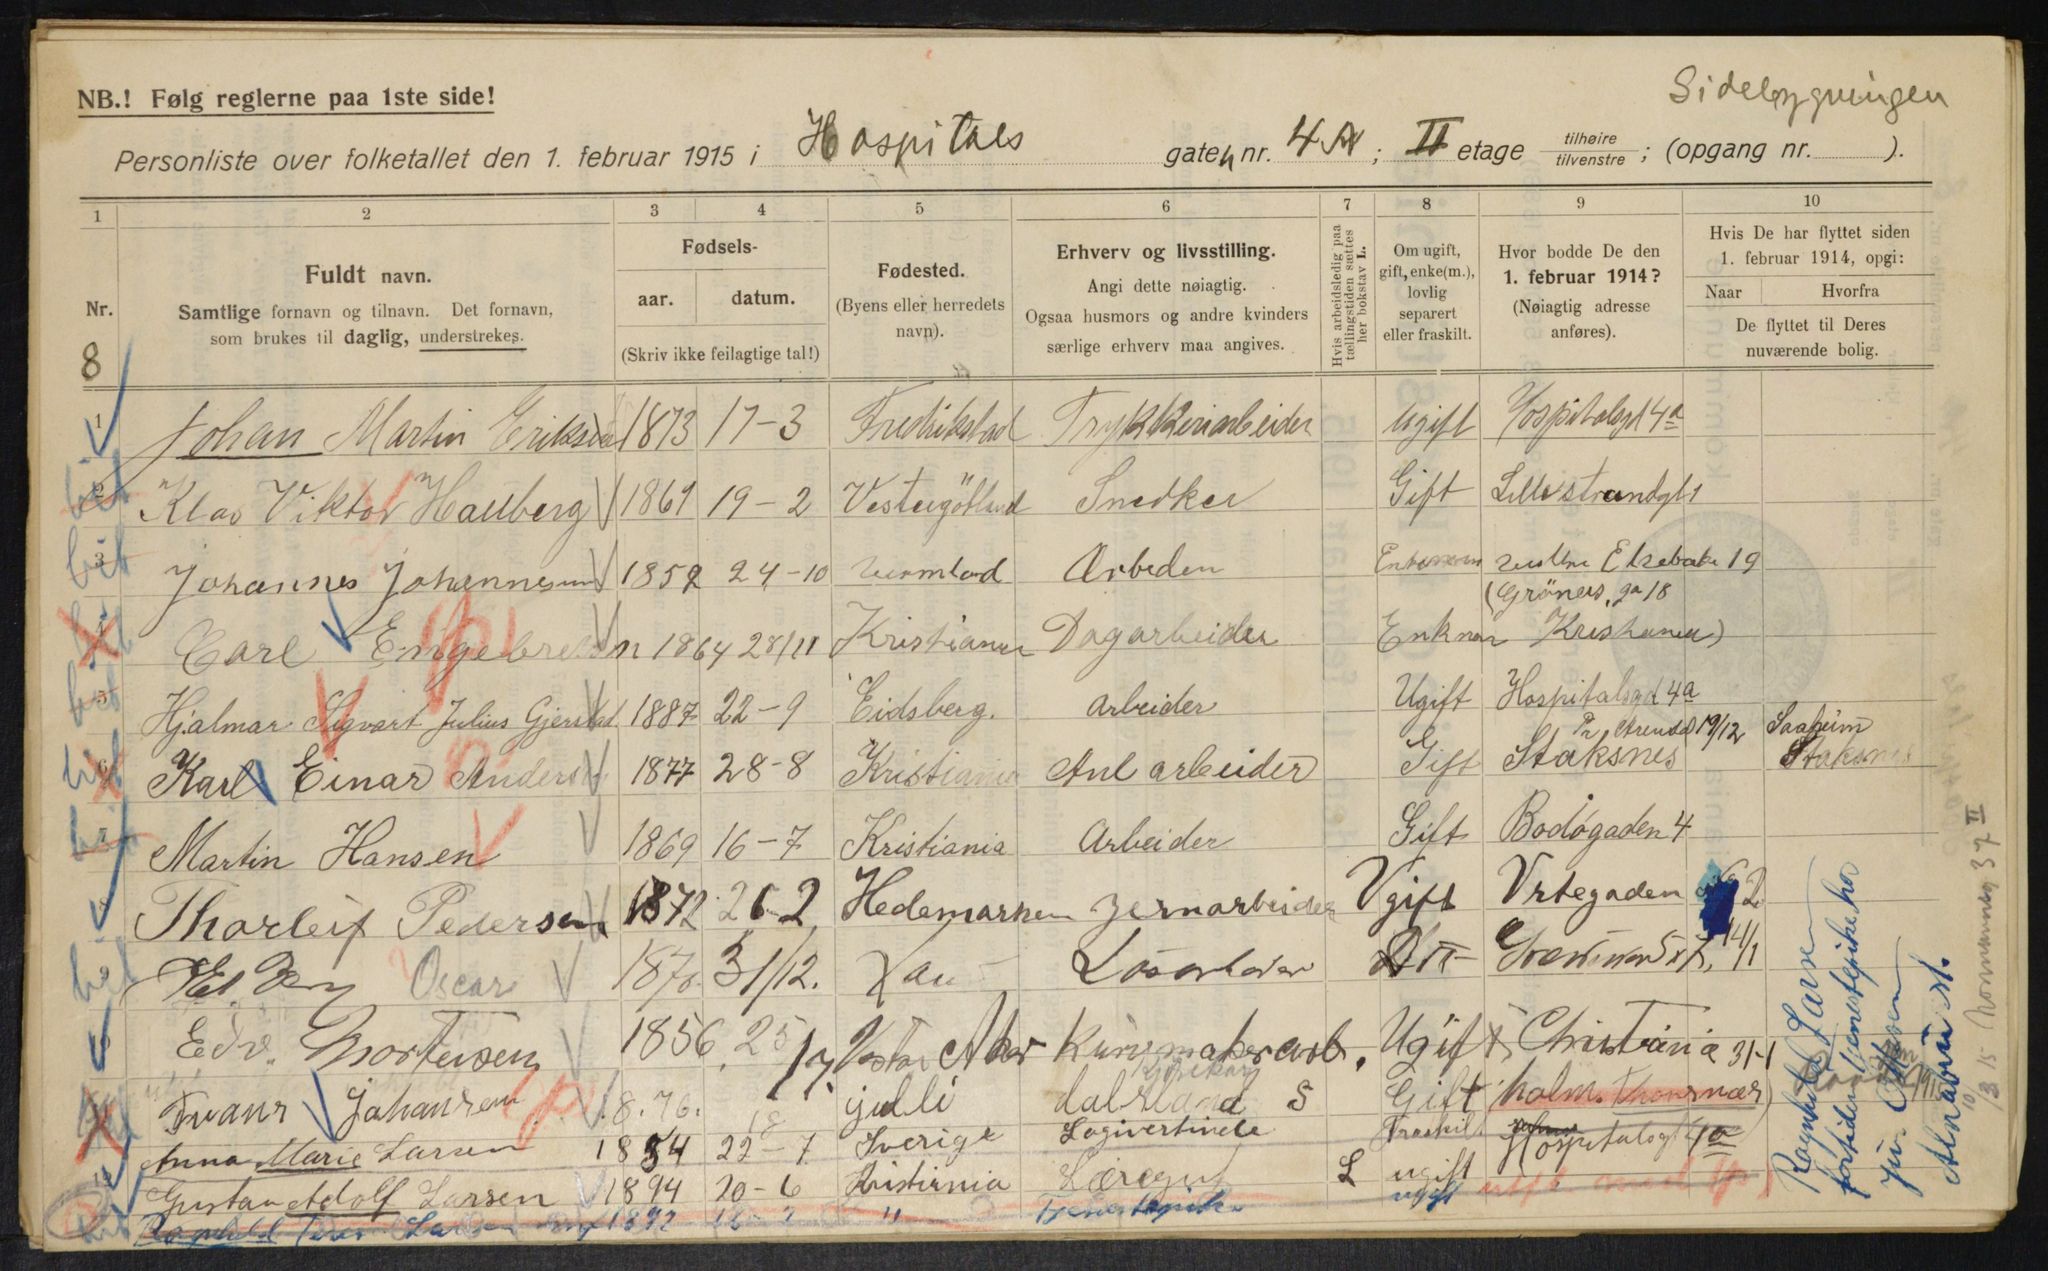 Sidebygningen
NB.! Følg reglerne paa 1ste side!
Personliste over folketallet den 1. februar 1915 i Hospitals gaten nr. 4A; II etage tilhøire/tilvenstre; (opgang nr. ).
1 2 3 4 5 6 7 8 9 10
Nr.
Fuldt navn.
Samtlige fornavn og tilnavn. Det fornavn, som brukes til daglig, understrekes.
Fødsels-
aar. datum.
(Skriv ikke feilagtige tal!)
Fødested.
(Byens eller herredets navn).
Erhverv og livsstilling.
Angi dette nøiagtig.
Ogsaa husmors og andre kvinders særlige erhverv maa angives.
Hvis arbeidsledig paa tællingstiden sættes her bokstav L.
Om ugift, gift, enke(m.), lovlig separert eller fraskilt.
Hvor bodde De den 1. februar 1914?
(Nøiagtig adresse anføres).
Hvis De har flyttet siden 1. februar 1914, opgi:
Naar Hvorfra
De flyttet til Deres nuværende bolig.
8
1 Johan Martin Eriksen 1873 17-3 Fredrikstad Trykkeriarbeider Ugift Hospitalsgd 4a
2 Klas Viktor Hallberg 1869 19-2 Vestergötland Snedker Gift Lille strandgt 1
3 Johannes Johannesen 1852 24-10 Arbeder 19
(Gröners ga 18
4 Carl Engebretsen 1864 28/11 Kristiania Dagarbeider Enkman Kristiania)
5 Hjalmar Sigvart Julius Gjerstad 1887 22-9 Eidsberg. Arbeider Ugift Hospitalsgd 4a
Pr Arendal 19/12 Saaheim
6 Karl Einar Anders 1877 28-8 Kristiania Anl arbeider Gift Staksnes Staksnes
7 Martin Hansen 1869 16-7 Kristiania Arbeider Gift Bodøgaden 4
Thorleif Pedersen 1872 26 2 Hedemarken Jernarbeider Ugift Urtegaden 2
Oscar 187 31/12. 14/1
Edv. Mortensen 1856 25/7 Vestre Aker Kurvmakerarb. Ugift Christiania 31-1
Frans Johansen 18.76. julli dalsland S Gift holm.
Anna Marie Larsen 1854 22-7 Sverige Logivertinde Fraskil Hospitalsgt 4a
Gustav Adolf Larsen 1894 20-6 Kristiania L ugift
Ragnhild Larsen 1892 16-2 " Tjenestepike ugift
Ragnhild Larsen
fortiden tjenestepike hos
Normannsg 37 II